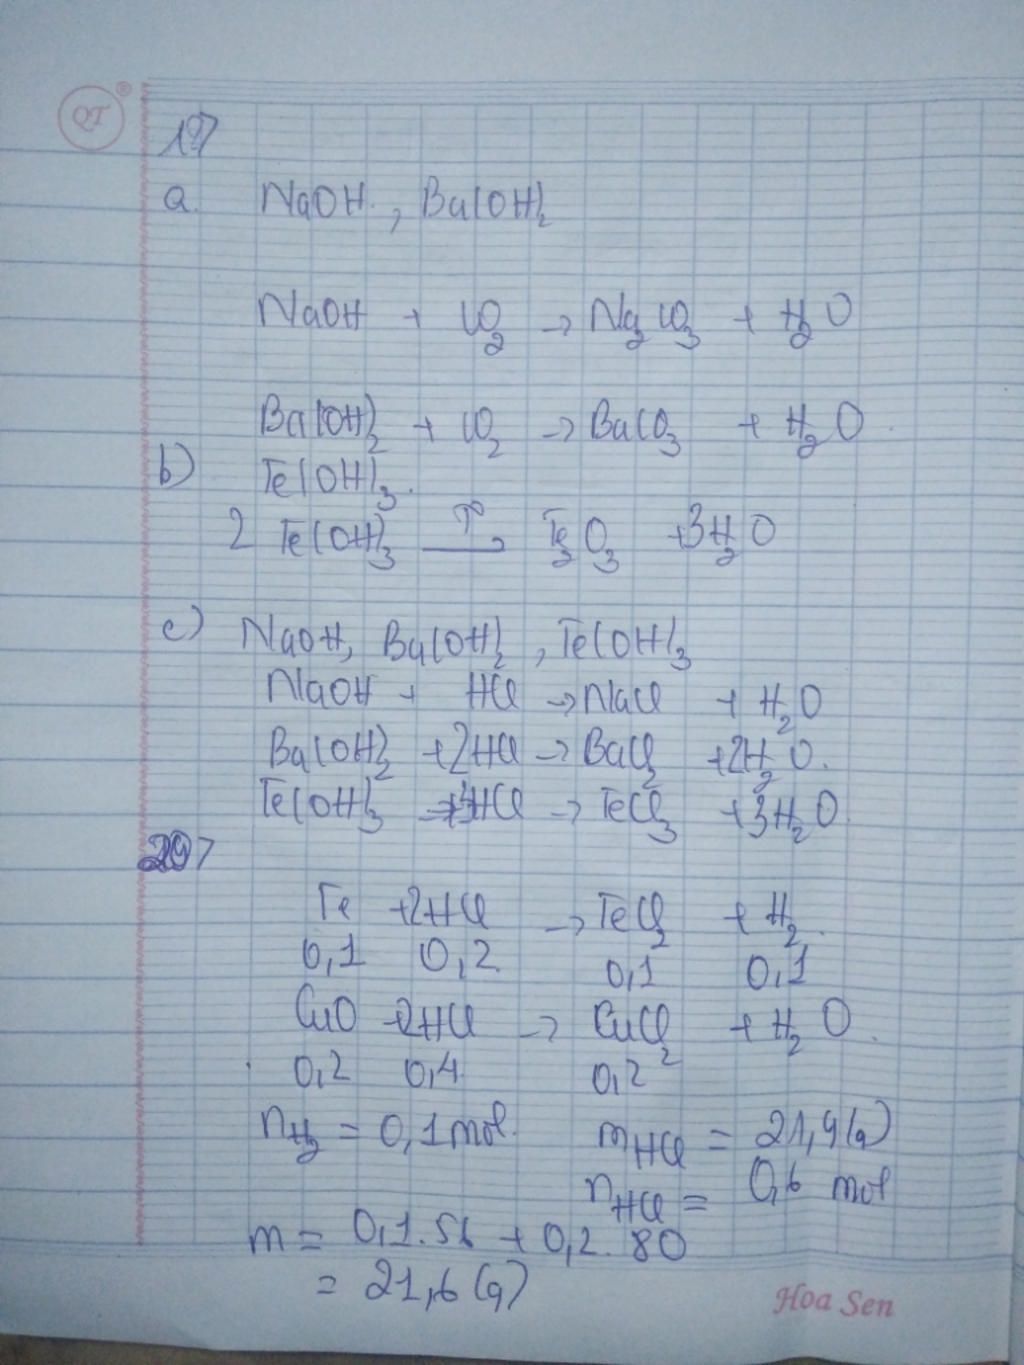 QT
19>
a. NaOH, Ba(OH)₂
NaOH + CO₂ → Na₂CO₃ + H₂O
Ba(OH)₂ + CO₂ → BaCO₃ + H₂O.
b) Fe(OH)₃.
2 Fe(OH)₃ —t°→ Fe₂O₃ + 3H₂O
c) NaOH, Ba(OH)₂, Fe(OH)₃
NaOH + HCl → NaCl + H₂O
Ba(OH)₂ + 2HCl → BaCl₂ + 2H₂O.
Fe(OH)₃ + 3HCl → FeCl₃ + 3H₂O.
20>
Fe + 2HCl → FeCl₂ + H₂.
0,1 0,2 0,1 0,1
CuO + 2HCl → CuCl₂ + H₂O.
0,2 0,4 0,2
nH₂ = 0,1 mol. mHCl = 21,9 (g)
nHCl = 0,6 mol
m = 0,1.56 + 0,2.80
= 21,6 (g)
Hoa Sen